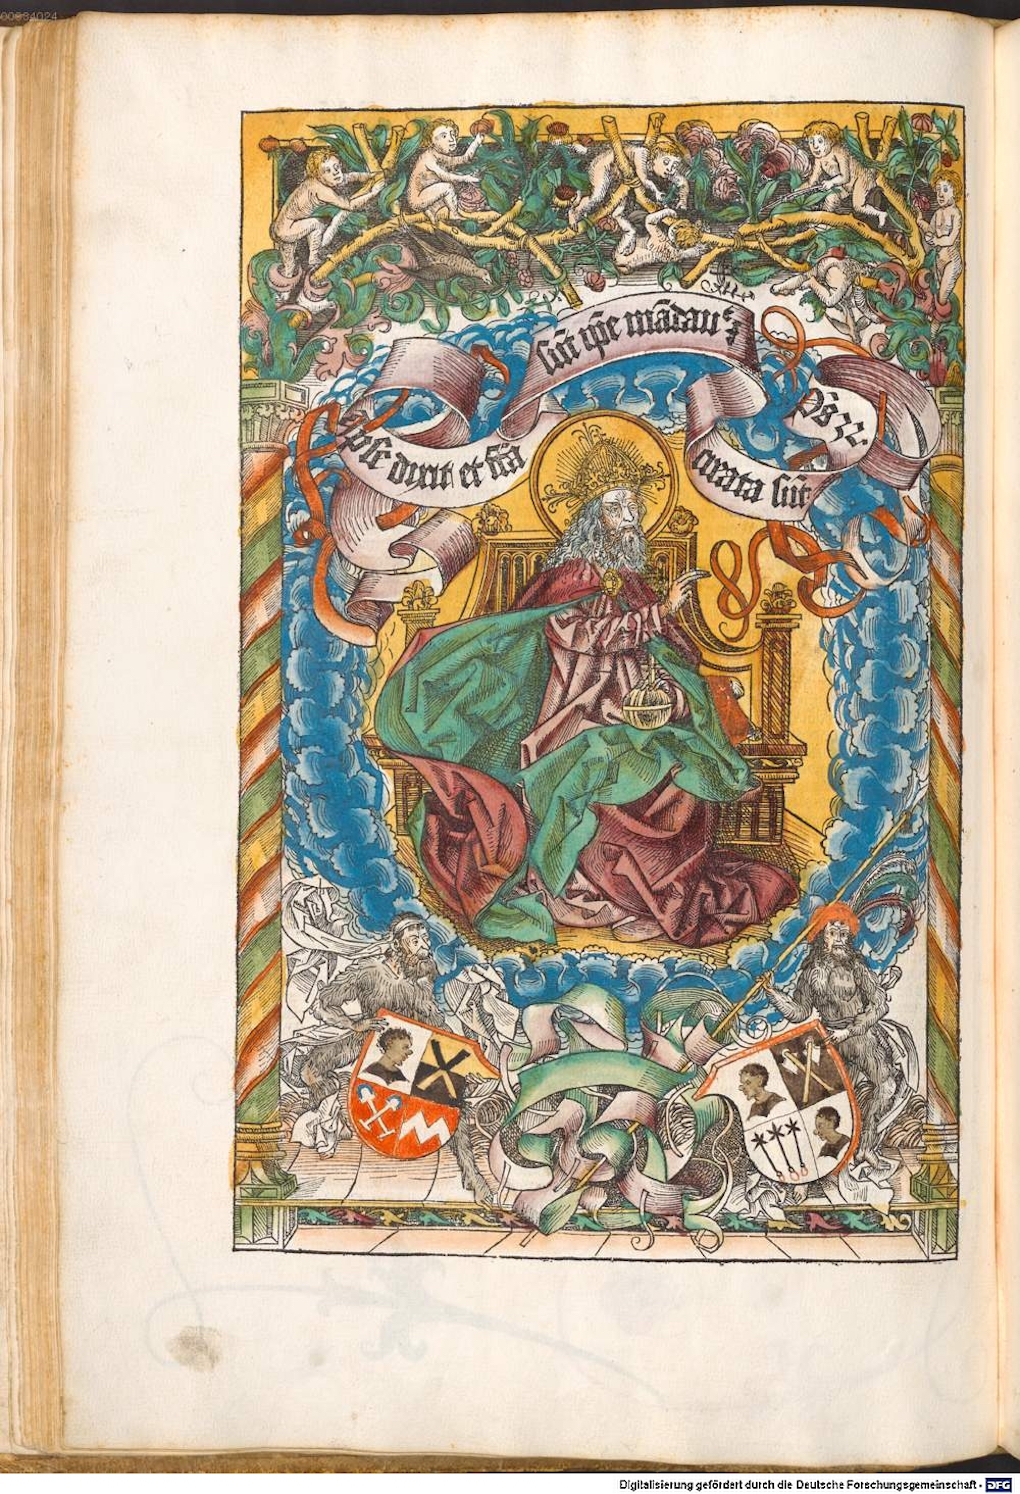 00034024
ipse dixit et fc̄a
sūt ip̄e mādauꝫ
ꝯs 32
creata sūt
Digitalisierung gefördert durch die Deutsche Forschungsgemeinschaft - DFG